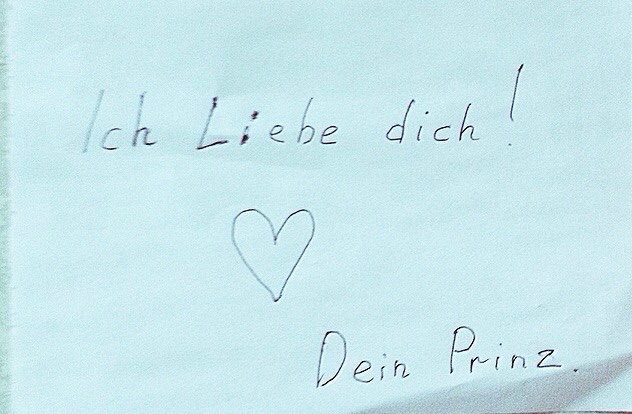 Ich Liebe dich!
Dein Prinz.